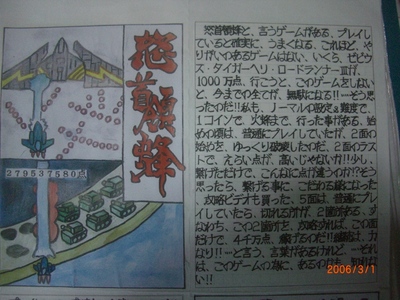 怒首領蜂
279537580点
怒首領蜂と、言うゲームがある、プレイし
ていると確実に、うまくなる、これほど、や
りがいのあるゲームはない、いくら、ゼビウ
ス・タイガーヘリ・ロードランナーⅢが、
1000万点、行こうと、このゲームをしない
と、今までの全てが、無駄になる!!…そう思
ったのだ!!私も、ノーマルの設定&難度で、
1コインで、火蜂まで、行った事がある、始
めの頃は、普通にプレイしていたが、2面の
始めを、ゆっくり破壊したのだ、2面のラス
トで、えらい点が、高いじゃない!!少し、
繋げただけで、こんなに点が違うのか?そう
思ったら、繋げる事に、こだわる様になった
、攻略ビデオも買った、5面は、普通にプレ
イしていたら、切れるのが、2面がある、す
なわち、この2面だけを、攻略すれば、この面
だけで、4千万点、繋げるのだ!!
なり!!…と言う、言葉があるけれど、…それ
は、このゲームの為に、あるのだ
2006/3/1